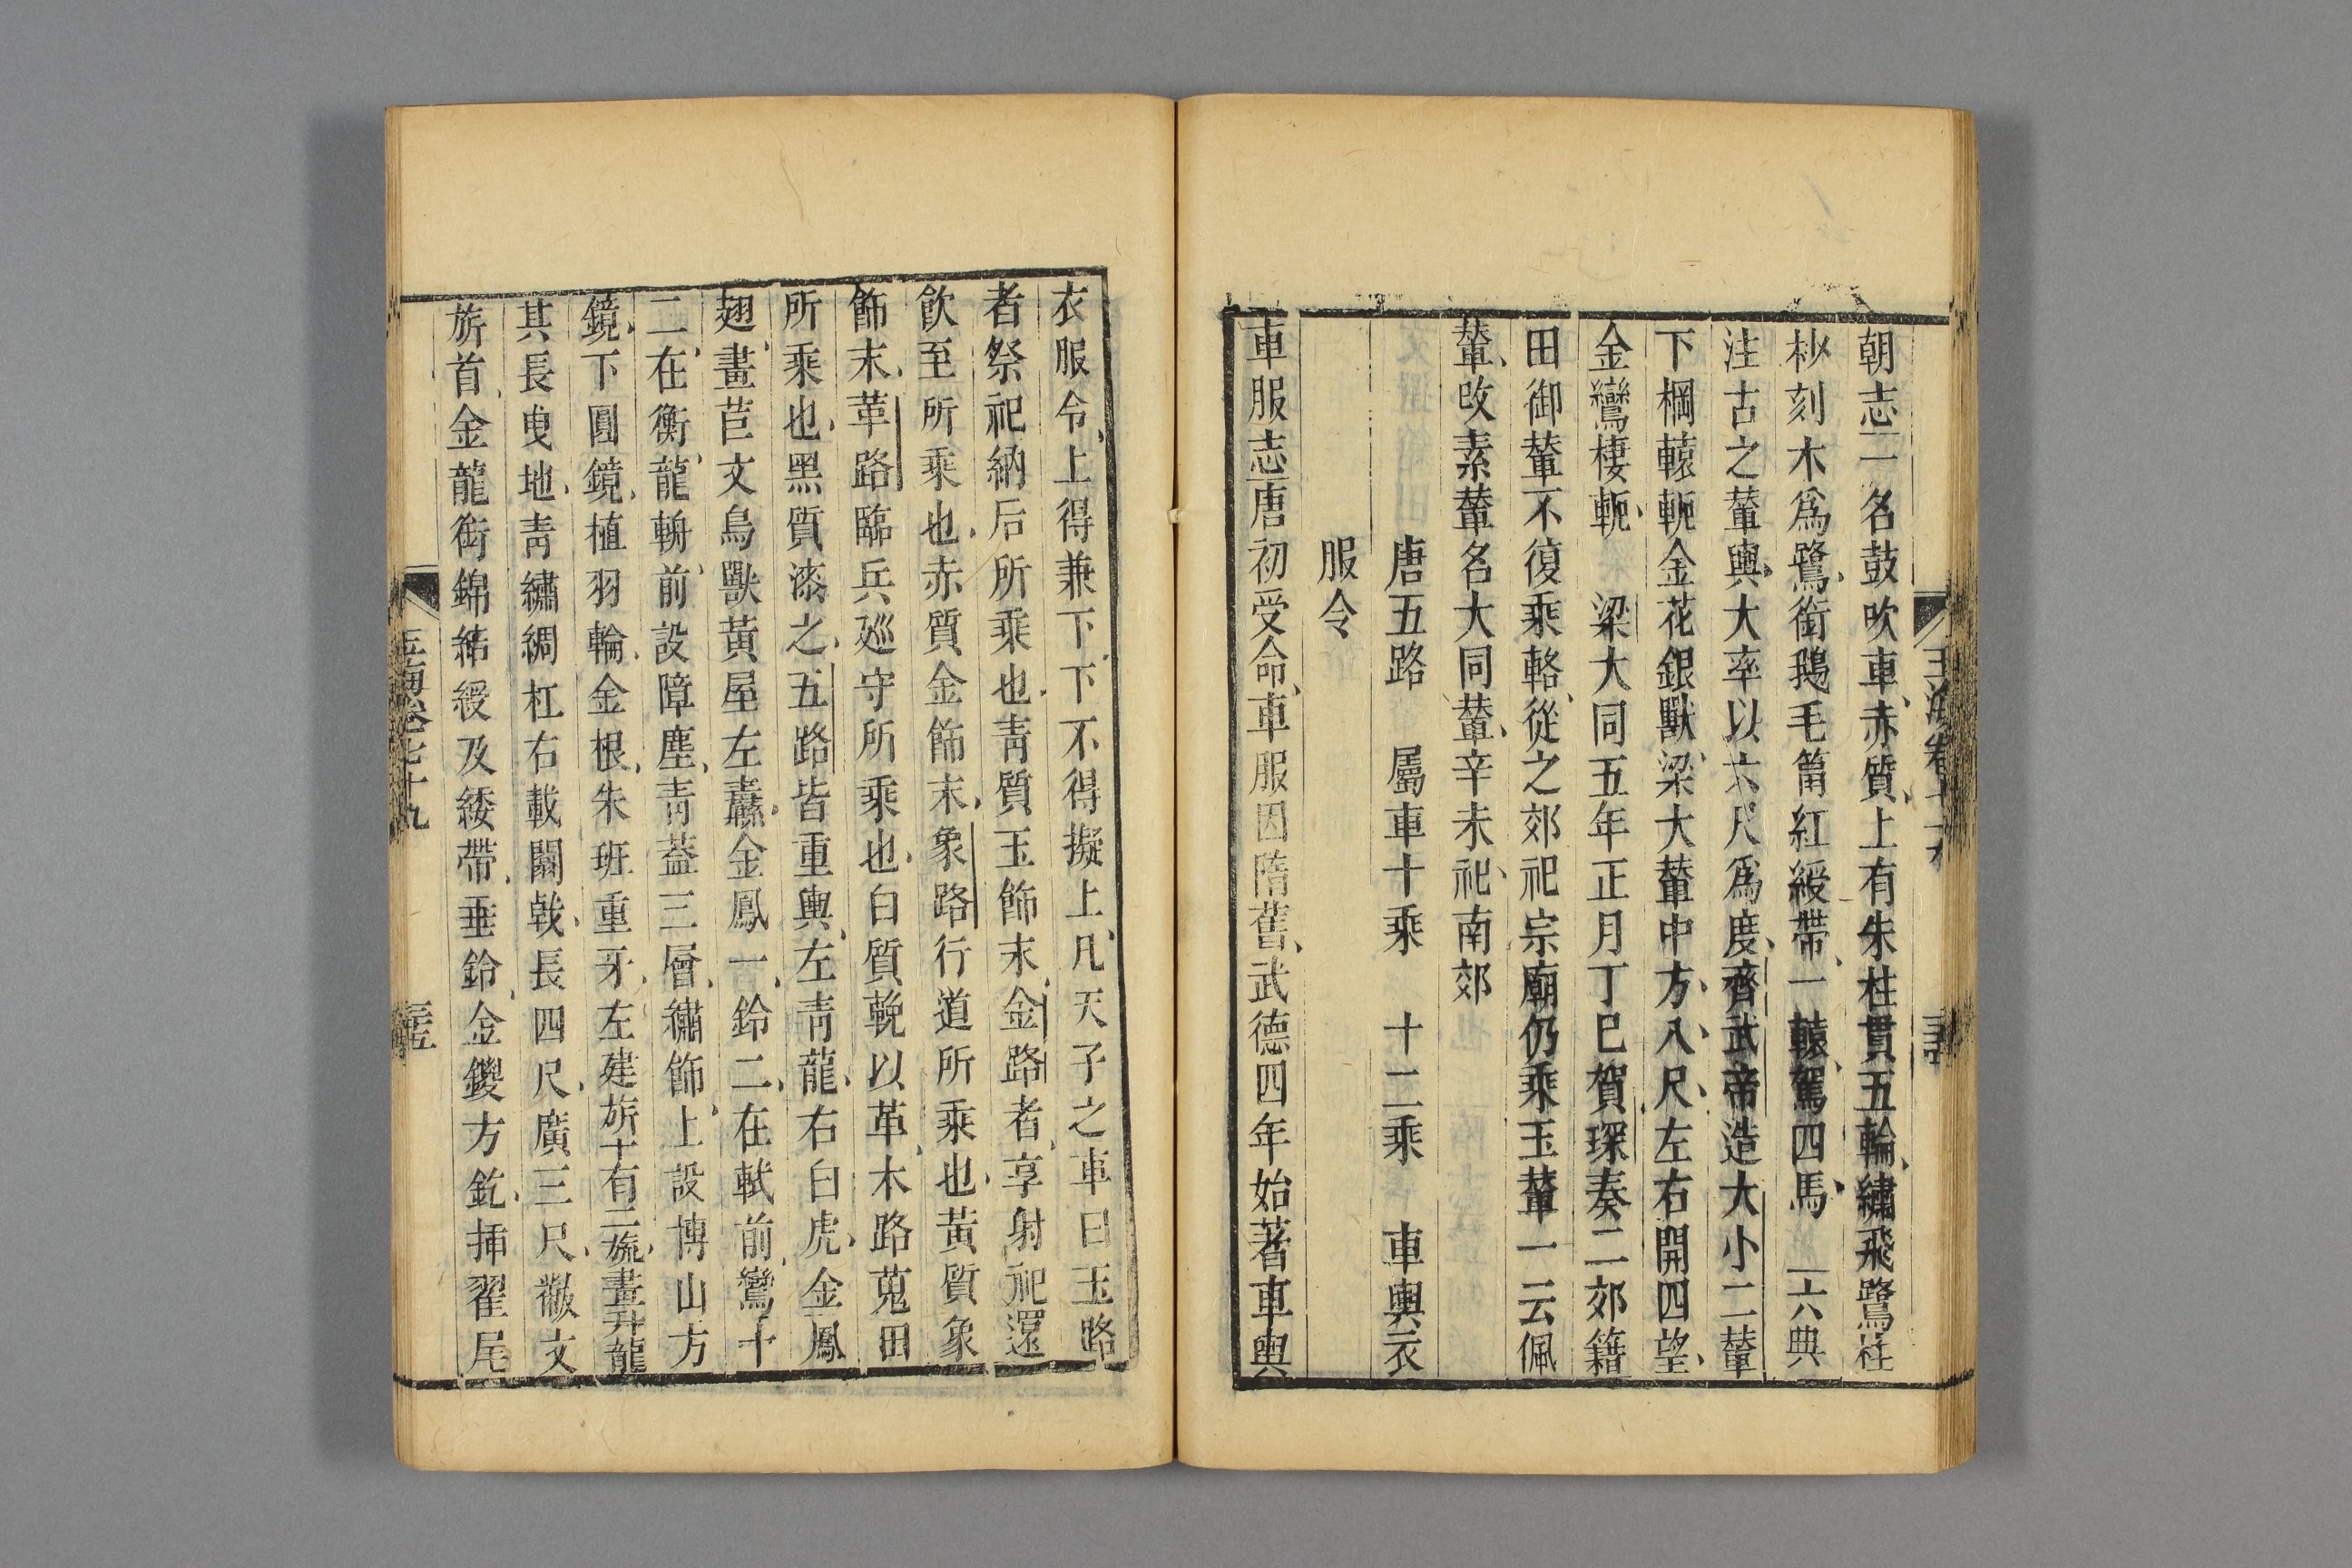 朝志一名鼓吹車赤質上有朱柱貫五輪繡飛鷺柱
杪刻木爲鷺銜鵝毛筩紅綬帶一轅駕四馬 六典
注古之輦輿大率以六尺爲度齊武帝造大小二輦
下棡轅軛金花銀獸梁大輦中方八尺左右開四望
金鸞棲軛 梁大同五年正月丁巳賀琛奏二郊籍
田御輦不復乘輅從之郊祀宗廟仍乘玉輦一云佩
輦改素輦名大同輦辛未祀南郊
唐五路 屬車十乘 十二乘 車輿衣
服令
車服志唐初受命車服因隋舊武德四年始著車輿
衣服令上得兼下下不得擬上凡天子之車曰玉路
者祭祀納后所乘也靑質玉飾末金路者享射祀還
飮至所乘也赤質金飾末象路行道所乘也黃質象
飾末革路臨兵廵守所乘也白質鞔以革木路蒐田
所乘也黑質漆之五路皆重輿左靑龍右白虎金鳳
翅畫苣文鳥獸黃屋左纛金鳳一鈴二在軾前鸞十
二在衡龍輈前設障塵靑蓋三層繡飾上設博山方
鏡下圓鏡植羽輪金根朱班重牙左建旂十有二旒畫升龍
其長曳地靑繡綢杠右載闟戟長四尺廣三尺黻文
旂首金龍銜錦結綬及緌帶垂鈴金鍐方釳揷翟尾
玉海卷七十九